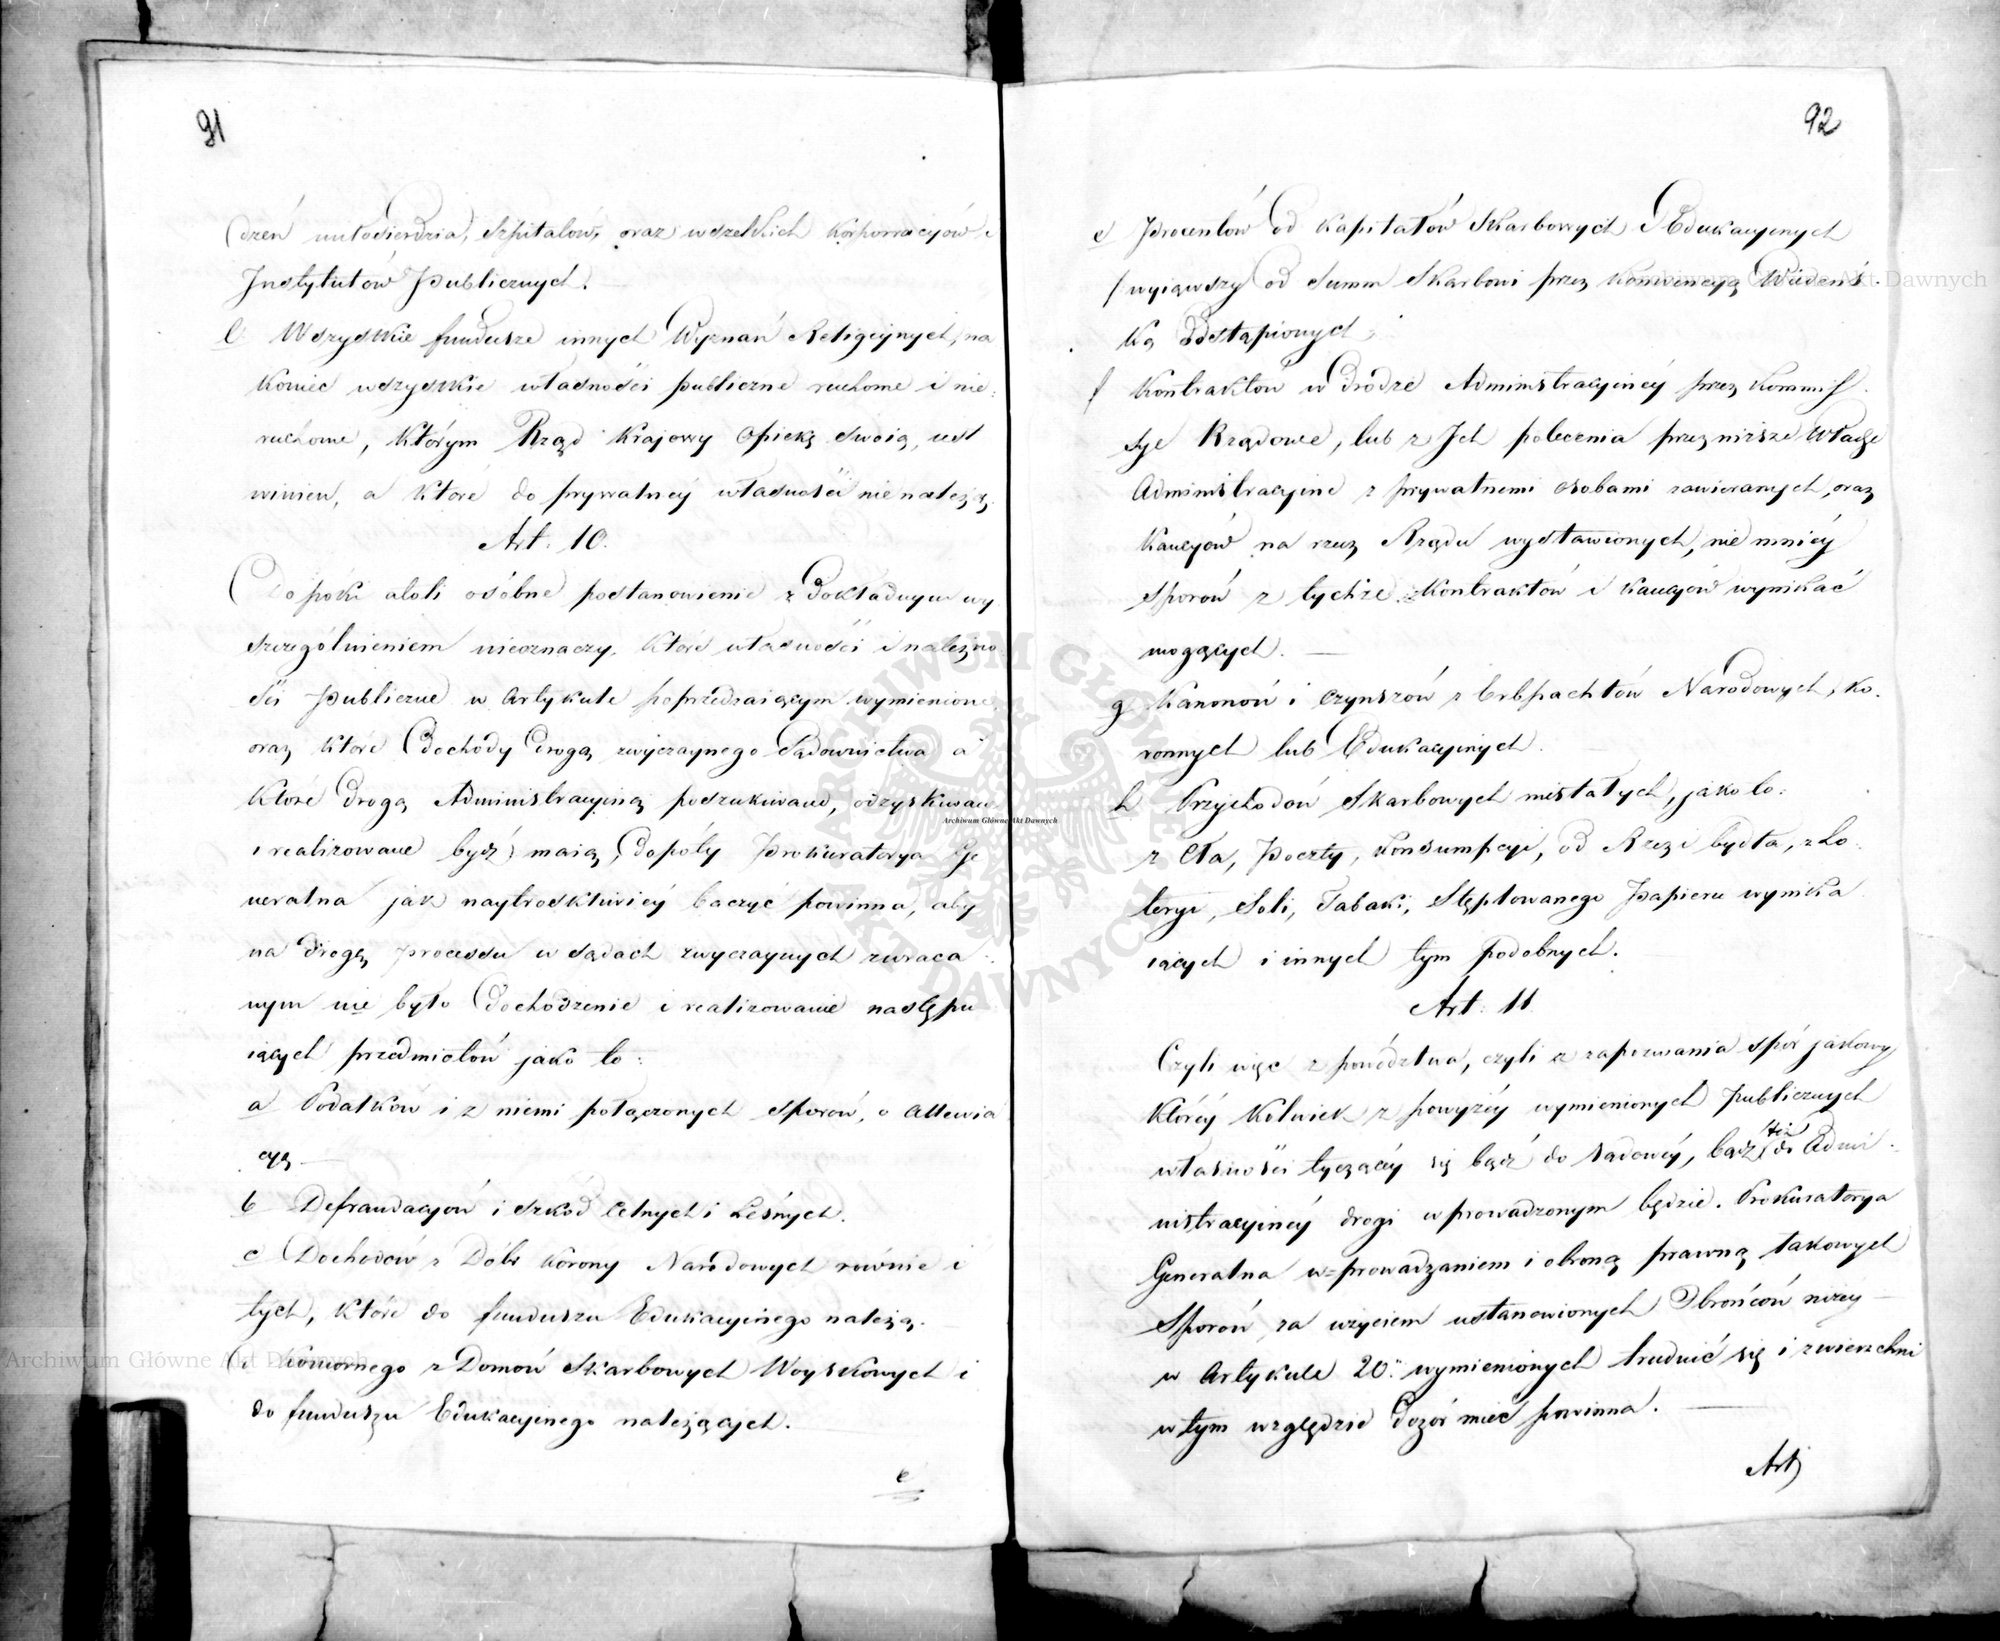 91
dzeń miłosierdzia, Szpitalów, oraz wszelkich Korporacyów i
Instytutów Publicznych.
l Wszystkie fundusze innych Wyznań Religijnych, na
koniec wszystkie własności publiczne ruchome i nie:
ruchome, którym Rząd Krajowy Opiekę swoią, iest
winien, a które do prywatnéy własności nie należą.
Art. 10.
Dopóki atoli osóbne postanowienie z Dokładnym wy
szczególnieniem nieoznaczy, które własności i należno
ści Publiczne w Artykule poprzedzaiącym wymienione,
oraz które Dochody Drogą zwyczaynego Sądownictwa a
które Drogą Administracyiną poszukiwane, odzyskiwane
i realizowane bydź maią, dopóty Prokuratorya Ge
neralna jak naytroskliwiéy baczyć powinna, aby
na drogę processu w Sądach zwyczaynych zwraca
nym nie było Dochodzenie i realizowanie następu
iących przedmiotów jako to:
a Podatków i z niemi połączonych sporów, o allewia
cyą —
b Defraudacyów i szkód Celnych i Leśnych.
c Dochodów z Dóbr Korony Narodowych równie i
tych, które do funduszu Edukacyinego należą.
d Komornego z Domów Skarbowych Woyskowych i
do funduszu Edukacyinego należących.
e
92
e Procentów od Kapitałów Skarbowych i Edukacyinych
/wyiąwszy od Summ Skarbowi przez Konwencyą Wiedeńs.
ką Odstąpionych
f Kontraktów w Drodze Administracyinéy przez Kommis.
sye Rządowe, lub z Ich polecenia przez niższe Władze
Administracyine z prywatnemi osobami zawieranych, oraz
Kaucyów na rzecz Rządu wystawionych, nie mniéy
sporów z tychże Kontraktów i Kaucyów wynikać
mogących. —
g Kanonów i Czynszów z Erbpachtów Narodowych, Ko.
ronnych lub Edukacyinych.
h Przychodów Skarbowych niestałych, jako to:
z Cła, Poczty, Konsumpcyi, od Rzezi bydła, z Lo:
teryi, Soli, Tabaki, Stęplowanego Papieru wynika
iących i innych tym podobnych.
Art. 11.
Czyli więc z powództwa, czyli z zapozwania spór jakowy
któréy kolwiek z powyżéy wymienionych Publicznych
własności tyczący się bądź do Sądowéy, bądź też do Admi:
nistracyinéy drogi wprowadzonym będzie. Prokuratorya
Generalna w=prowadzaniem i obroną prawną takowych
Sporów za użyciem ustanowionych Obrońców niżey —
w Artykule 20. wymienionych trudnić się i zwierzchni
w tym względzie Dozór mieć powinna. —
Art
Archiwum Główne Akt Dawnych
Archiwum Główne Akt Dawnych
Archiwum Główne Akt Dawnych
ARCHIWUM GŁÓWNE AKT DAWNYCH